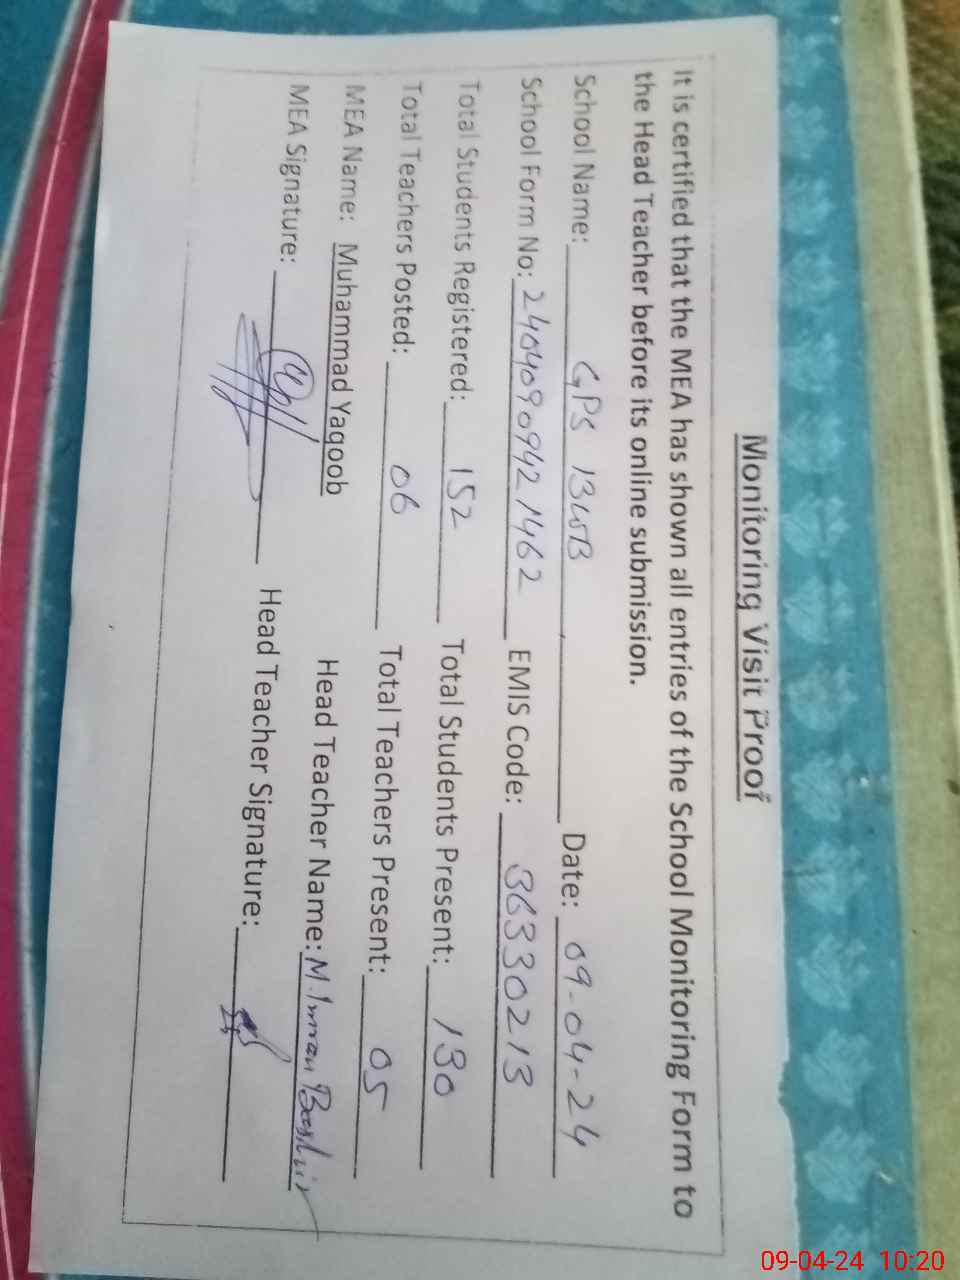 Monitoring Visit Proof
It is certified that the MEA has shown all entries of the School Monitoring Form to
the Head Teacher before its online submission.
School Name: GPS 13WB Date: 09-04-24
School Form No: 24040909421462 EMIS Code: 36330213
Total Students Registered: 152 Total Students Present: 130
Total Teachers Posted: 06 Total Teachers Present: 05
MEA Name: Muhammad Yaqoob Head Teacher Name: M. Imran Bashir
MEA Signature: Head Teacher Signature:
09-04-24 10:20